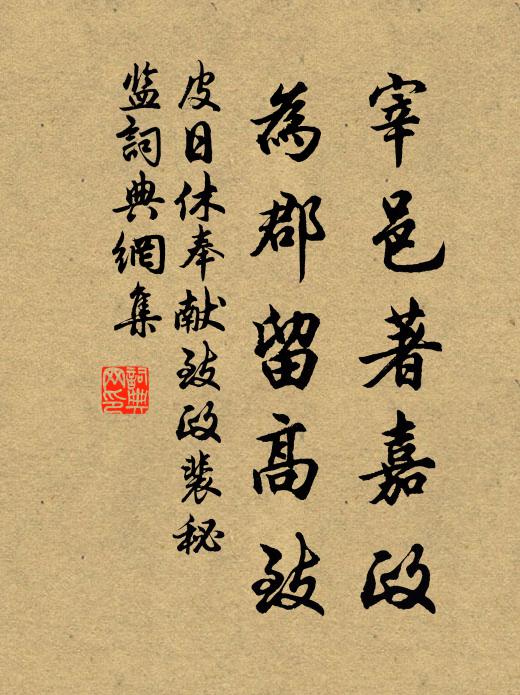 宰邑著嘉政
為郡留高致
皮日休奉献致政裴秘
监詞典網集
詞典
网印